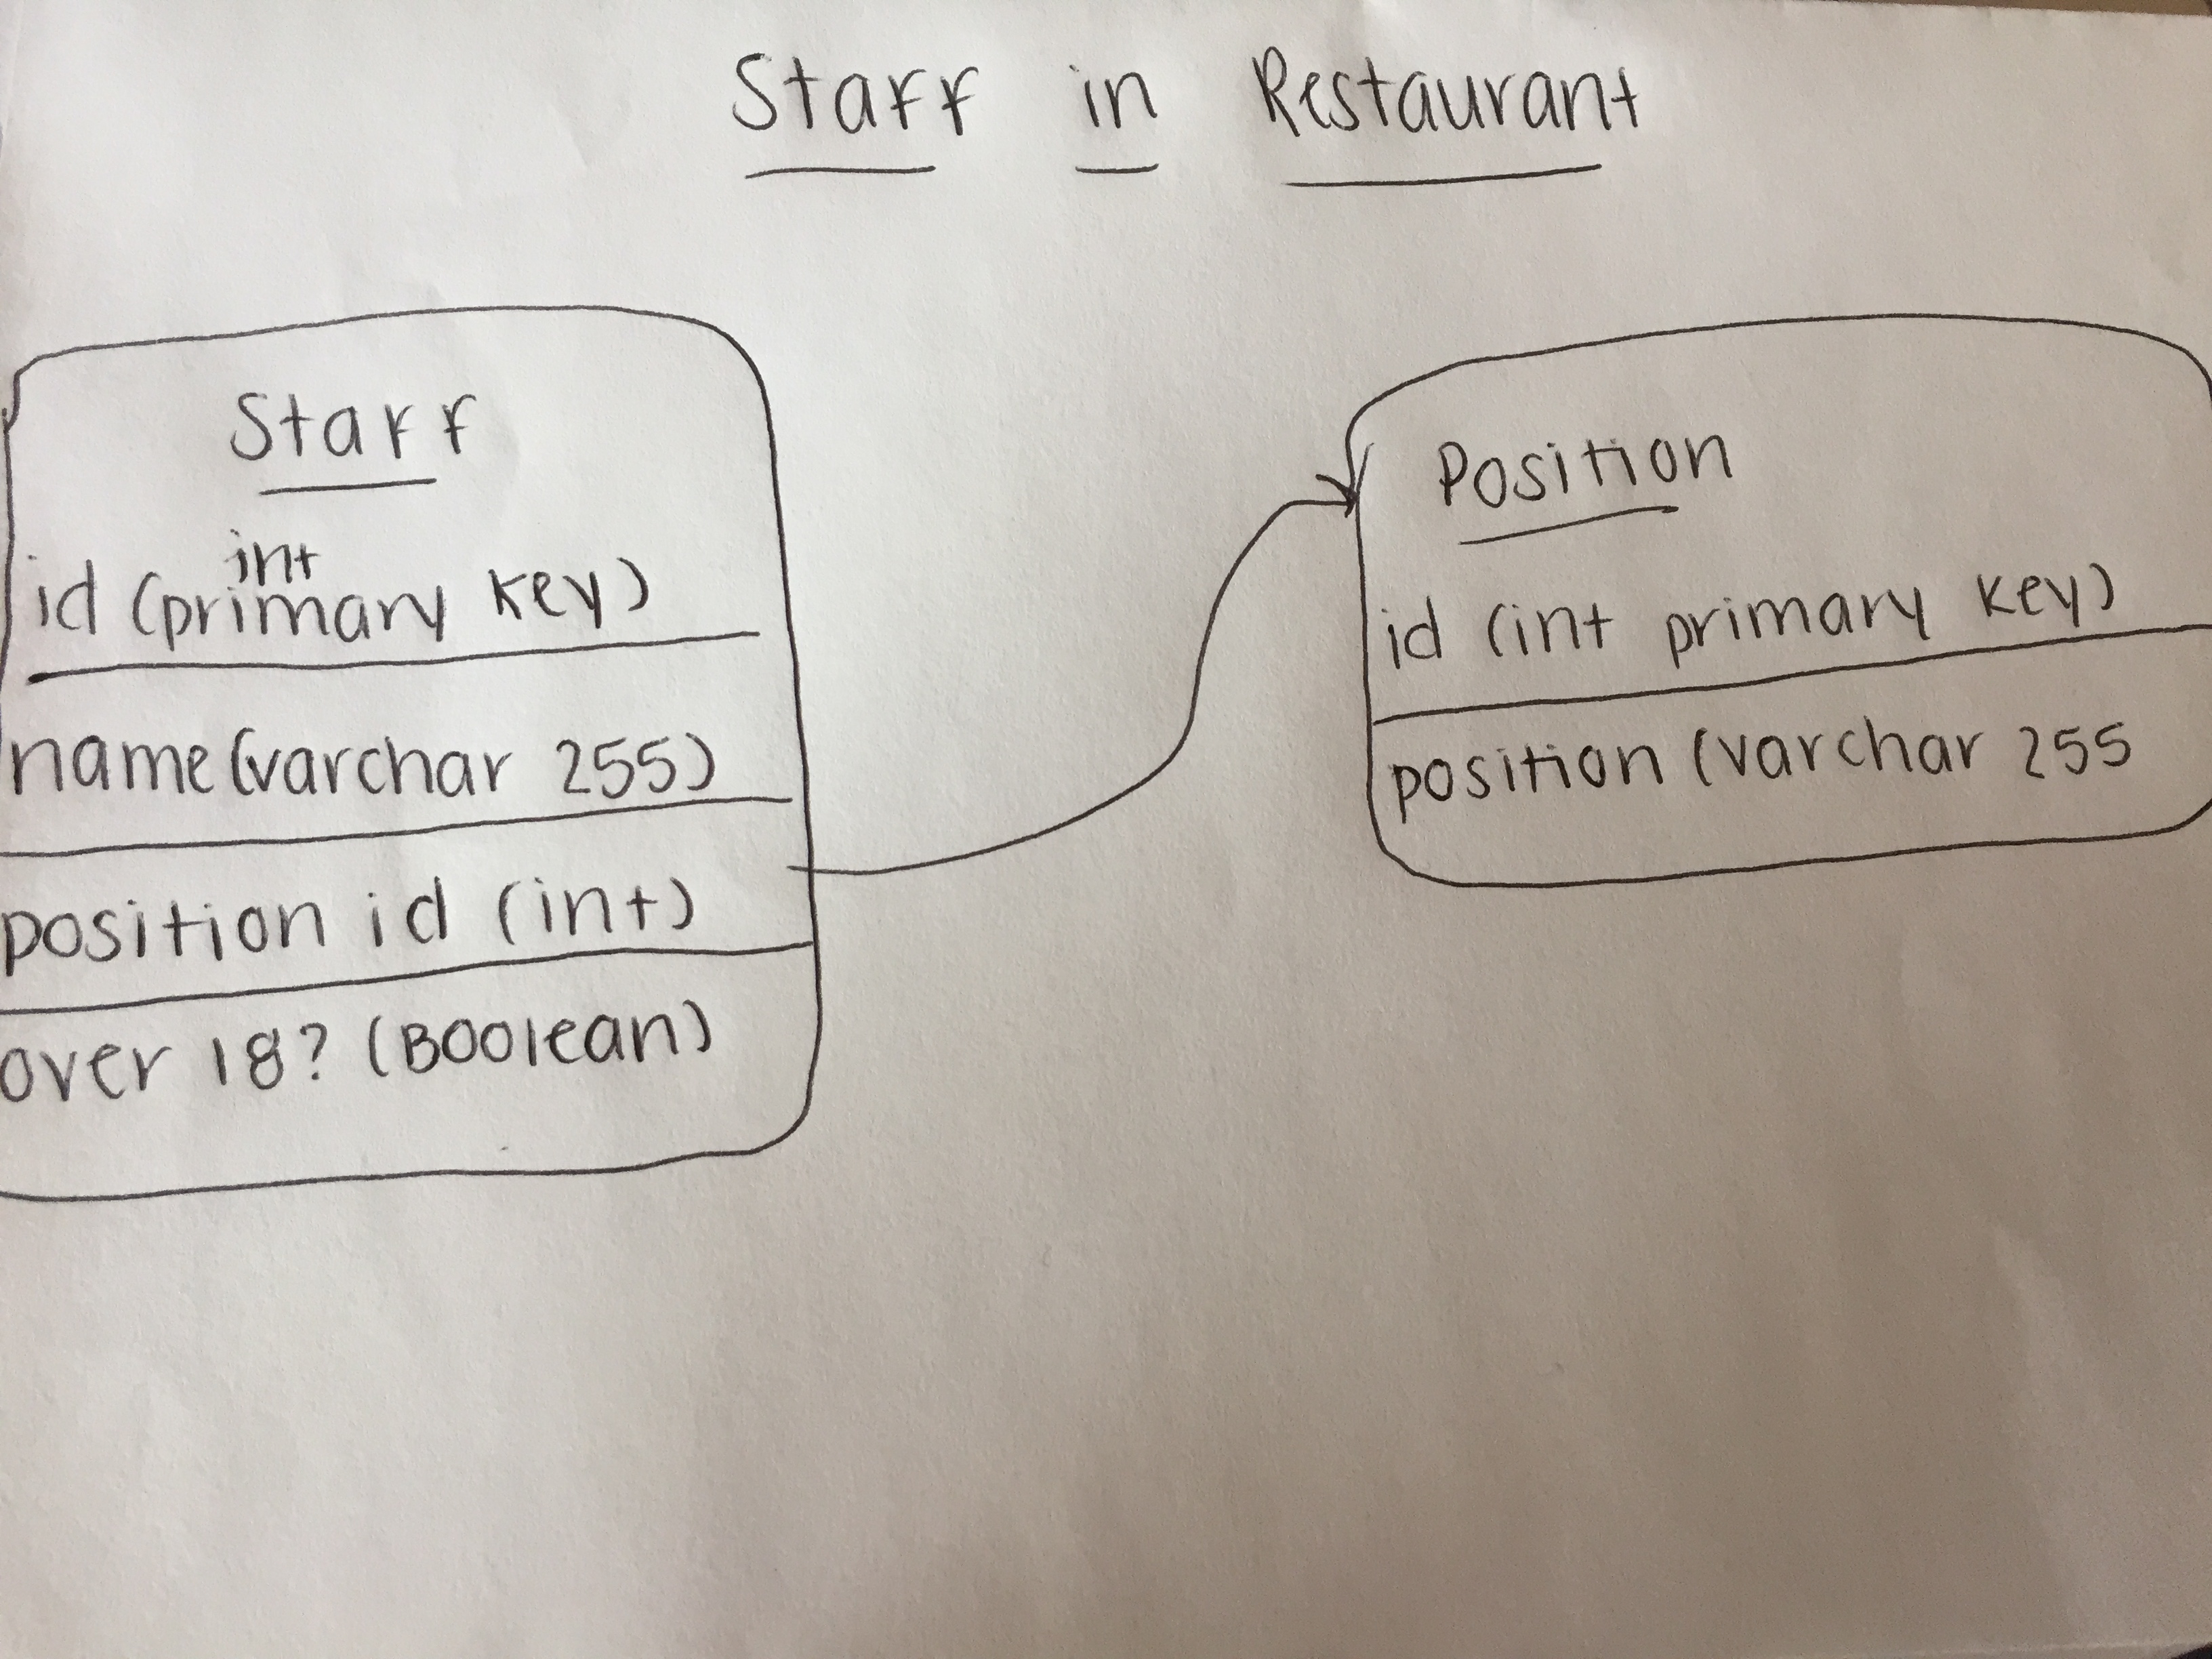 Staff in Restaurant
Staff
int
id (primary key)
name (varchar 255)
position id (int)
over 18? (Boolean)
Position
id (int primary key)
position (varchar 255